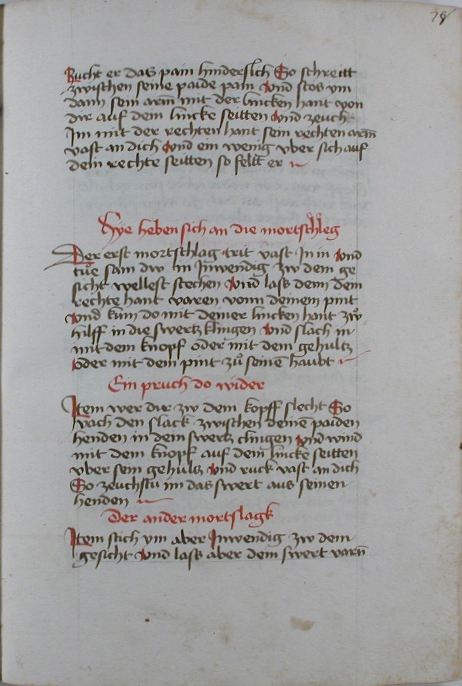 78
Ruckt er das pain hindersich So schreitt
zwischen seine paide pain Und stos ym
dann sein arm mit der lincken hant von
dir auf dein lincke seitten Und zeuch
Im mit der rechten hant sein rechten arm
vast an dich Und ein wenig vber sich auf
dein rechte seitten so fellt er
Hye heben sich an die mortschleg
Der erst mortschlag trit vast In in Und
tue sam dw in Inwendig zw dem ge
sicht wellest stechen Und lass denn dein
rechte hant varen vonn deinem pint
Und kum do mit deiner lincken hant zw
hilff in die swertz klingen Und slach in
mit dem knopf oder mit dem gehultz
oder mit dem pint zu seinem haubt
Ein pruch do wider
Item wer dir zw dem kopff slecht So
vach den slack zwischen deine paiden
henden in dein swertz clingen Und wind
mit dem knopf auf dein lincke seitten
vber sein gehultz Und ruck vast an dich
So zeuchstu im das swert aus seinen
henden
Der ander mortslagk
Item stich ym aber Inwendig zw dem
gesicht Und lass aber dem swert varn